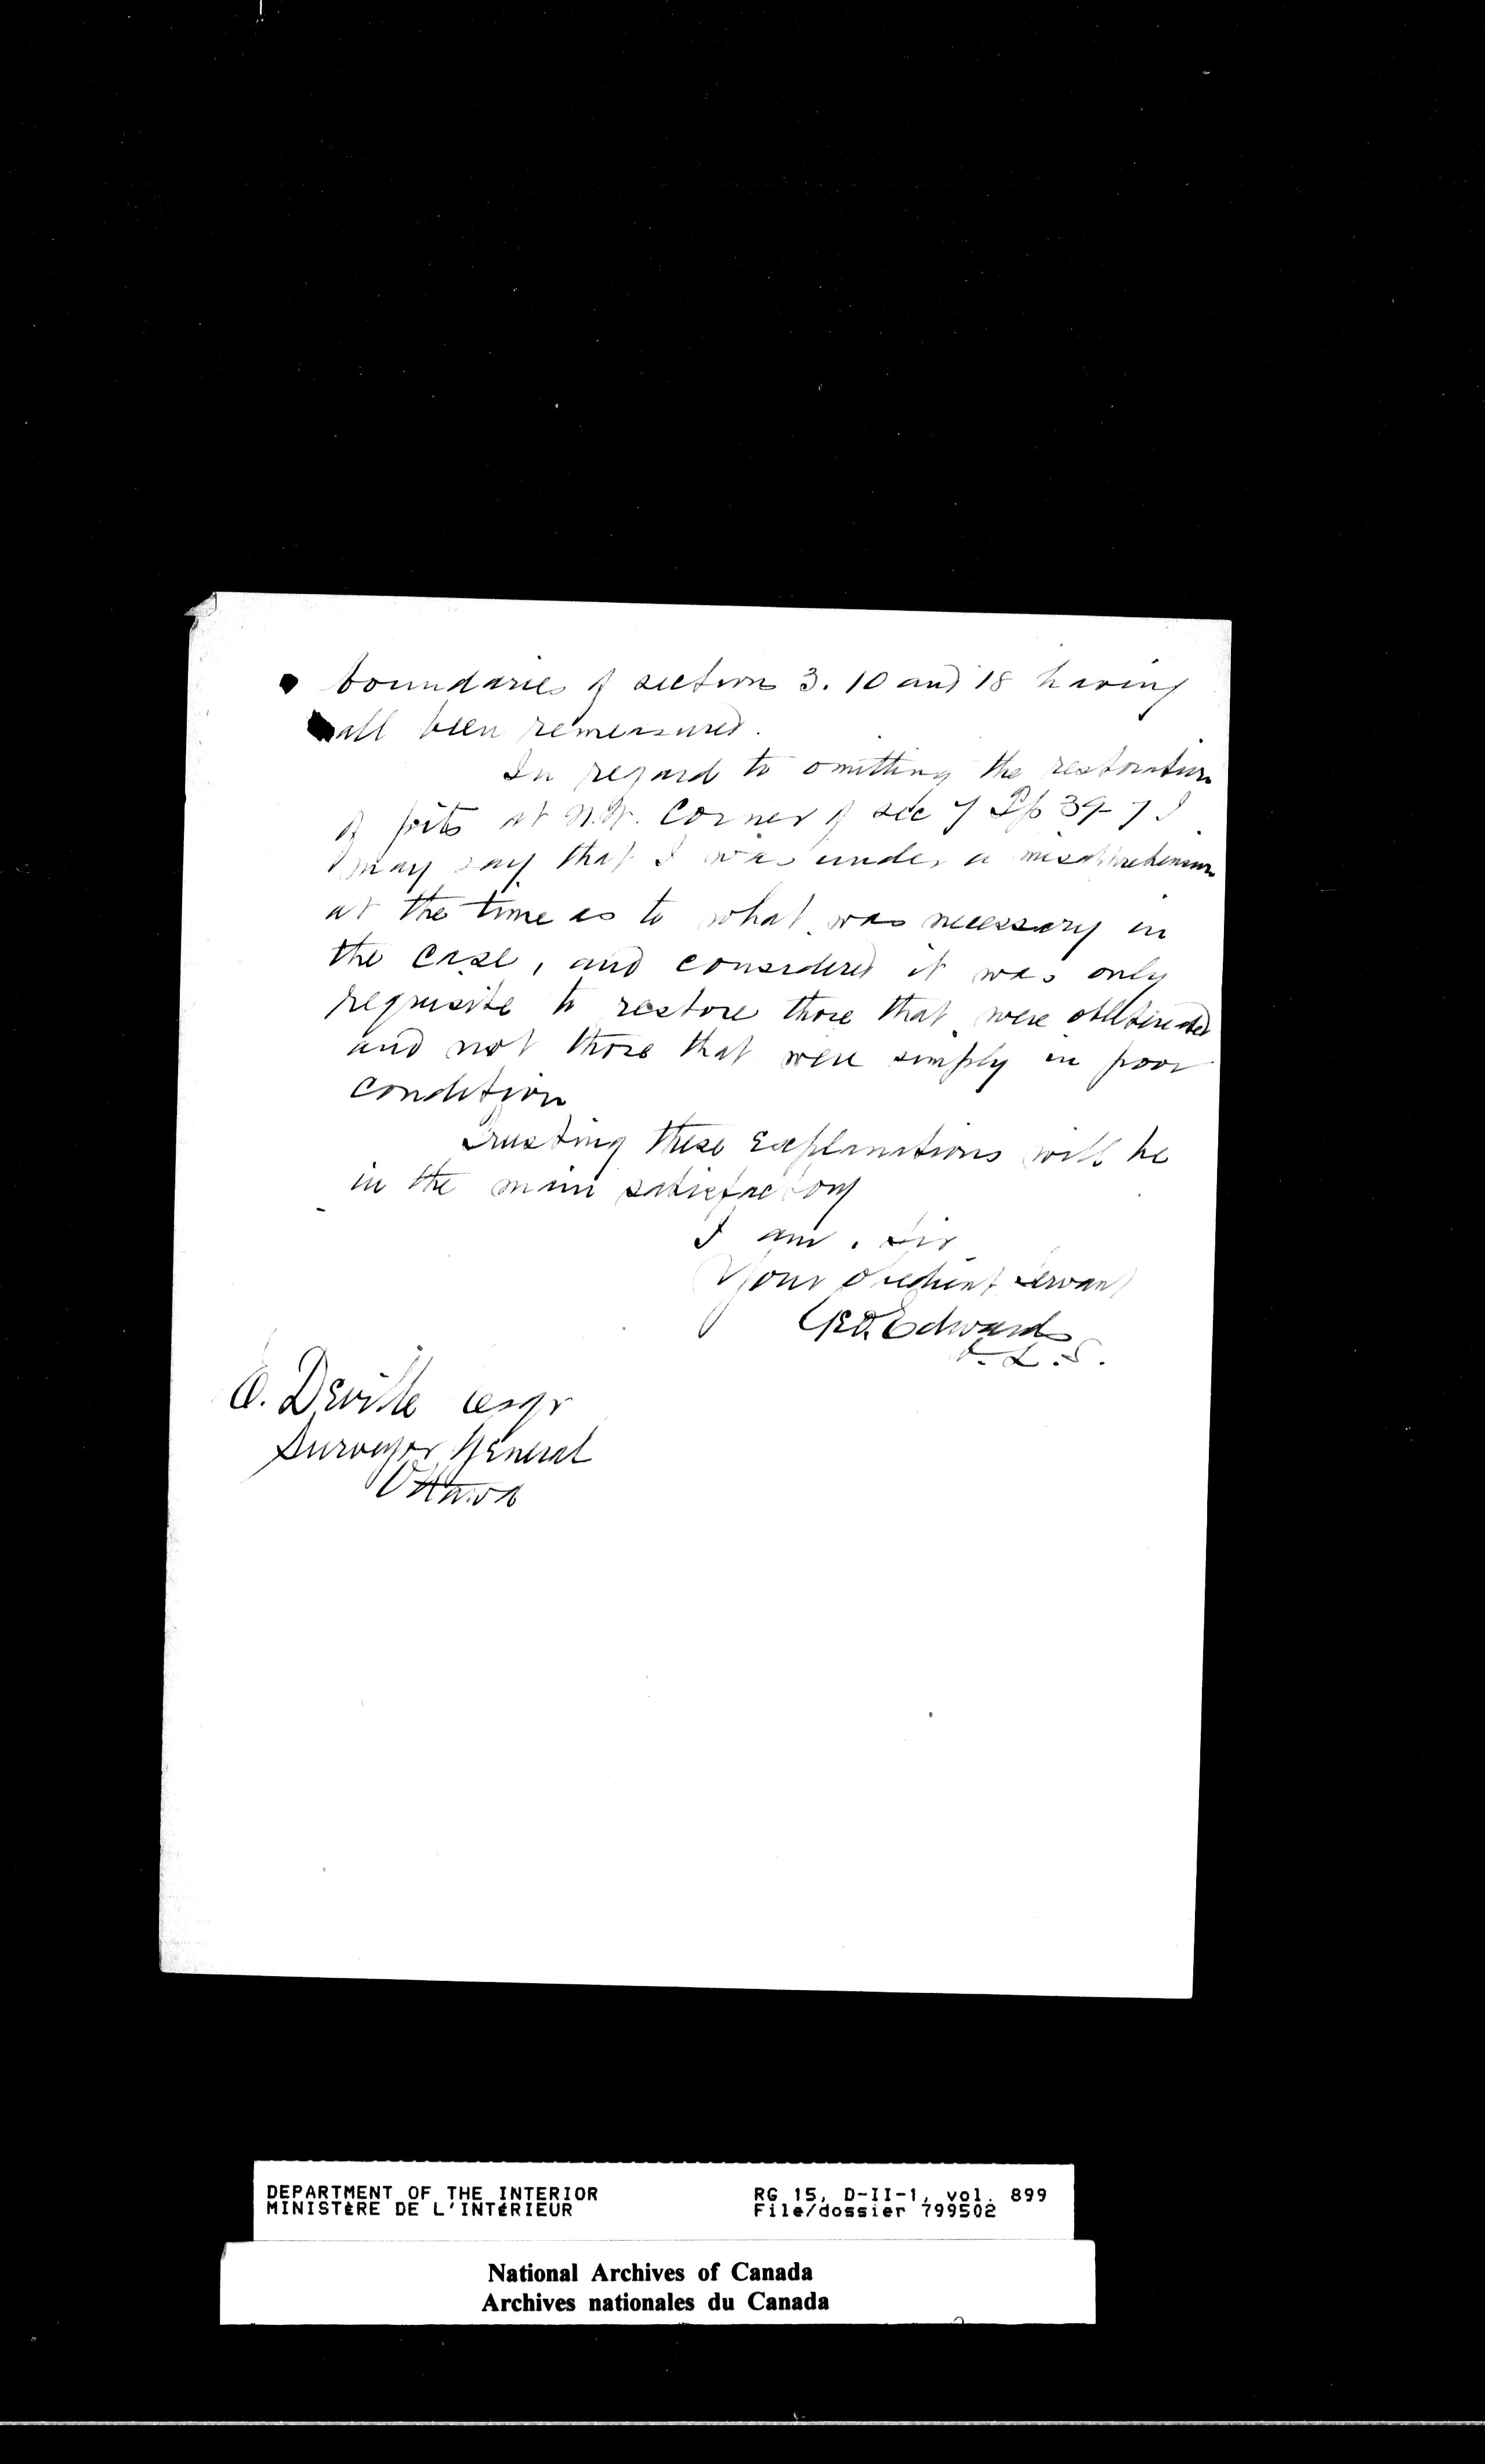 boundaries of sections 3. 10 and 18 having
all been remeasured.
In regard to omitting the restoration
of pits at N.W. Corner of sec 7 Tp 39-7 I
may say that I was under a misapprehension
at the time as to what was necessary in
the case, and considered it was only
requisite to restore those that were obliterated
and not those that were simply in poor
condition
Trusting these explanations will be
in the main satisfactory
I am, Sir
Your obedient Servant
Geo. Edwards
L.S.
E. Deville esqr
Surveyor General
Ottawa
DEPARTMENT OF THE INTERIOR
MINISTÈRE DE L'INTÉRIEUR
RG 15, D-II-1, vol. 899
File/dossier 799502
National Archives of Canada
Archives nationales du Canada